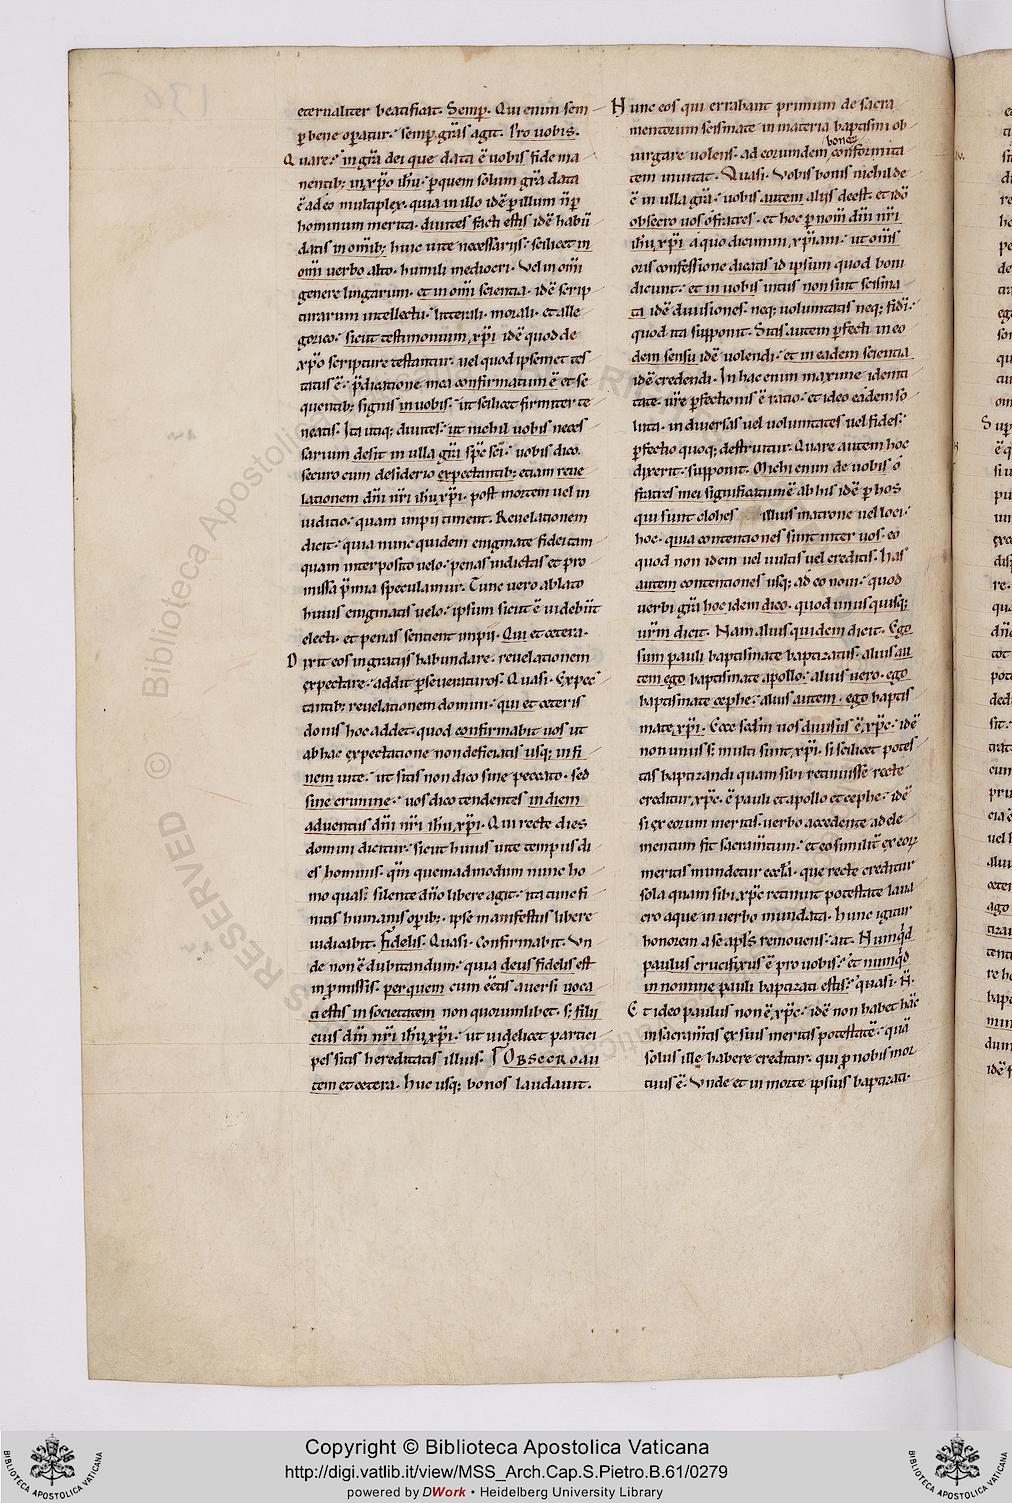 eternaliter beatificat. Semp̱. Qui enim sem
ꝑ bene oꝑatur. semꝑ gr̄as agit. Pro uobis.
Quare. in gr̄a dei que data ē uobis fide ma
nentib; in xp̄o ih̄u. ꝑ quem solum gr̄a data
ē adeo multiplex. quia in illo idē ꝑ illum ñ ꝑ
hominum merita. diuites facti estis idē habū
datis in om̄ib; huic uite necessarijs. scilicet in
om̄i uerbo alto. humili mediocri. Vel in om̄i
genere linguarum. et in om̄i scientia. idē scrip
turarum intellectu. litterali. morali. et alle
gorico. sicut testimonium xp̄i idē quod de
xp̄o scripture testantur. uel quod ipsemet tes
tatus ē. p̄dicatione mea confirmatum ē et se
quentib; signis in uobis. ut scilicet firmiter te
neatis. Ita utiq; diuites. ut nichil uobis neces
sarium desit in ulla gr̄a sp̄c sc̄i. uobis dico.
securo cum desiderio expectantib; etiam reue
lationem dn̄i nr̄i ih̄u xp̄i. post mortem uel in
iuditio. quam impij timent. Reuelationem
dicit. quia nunc quidem enigmate fidei tam
quam interposito uelo. penas indictas et pro
missa p̄mia speculamur. Tunc uero ablato
huius enigmatis uelo. ipsum sicut ē uidebūt
electi. et penas sentient impij. Qui et cetera.
Dixit eos in gratijs habundare. reuelationem
expectare. addit ꝑseueraturos. Quasi. Expec
tantib; reuelationem domini. qui et ceteris
donis hoc addet. quod confirmabit uos ut
ab hac expectatione non deficiatis usq; in fi
nem uite. ut sitis non dico sine peccato. sed
sine crimine. uos dico tendentes in diem
aduentus dn̄i nr̄i ih̄u xp̄i. Qui recte dies
domini dicitur. sicut huius uite tempus di
es hominis. qm̄ quemadmodum nunc ho
mo quasi silente dn̄o libere agit. ita tunc fi
nitis humanis oꝑib;. ipse manifestus libere
iudicabit. Fidelis. Quasi. Confirmabit. Vn
de non ē dubitandum. quia deus fidelis est
in ꝓmissis. per quem cum cētis auersi uoca
ti estis in societatem non quorumlibet. s; filij
eius dn̄i nr̄i ih̄u xp̄i. ut uidelicet partici
pes sitis hereditatis illius. OBSECRO AU
tem et cetera. huc usq; bonos laudauit.
Hunc eos qui errabant primum de sacra
mentorum scismate in materia baptismi ob
iurgare uolens. ad eorumdem bonos conformita
tem inuitat. Quasi. Vobis bonis nichil de
ē in ulla gr̄a. uobis autem alijs deest. et idō
obsecro uos o fratres. et hoc ꝑ nom̄ dn̄i nr̄i
ih̄u xp̄i a quo dicimini xp̄iani. ut om̄s
oris confessione dicatis id ipsum quod boni
dicunt. et in uobis intus non sint scisma
ta idē diuisiones. neq; uoluntatis neq; fidei.
quod ita supponit. Sitis autem ꝑfecti in eo
dem sensu idē uolendi. et in eadem scientia
idē credendi. In hac enim maxime identi
tate ur̄e ꝑfectionis ē ratio. et ideo eadem so
luta. in diuersas uel uoluntates uel fides.
ꝑfectio quoq; destruitur. Quare autem hoc
dixerit. supponit. Michi enim de uobis ō
fratres mei significatum ē ab his idē ꝑ hos
qui sunt clohes illius matrone uel loci.
hoc. quia contentiones sunt inter uos. eo
quod non idem uel uultis uel creditis. Has
autem contentiones usq; ad eo noui. quod
uerbi gr̄a hoc idem dico. quod unusquisq;
ur̄m dicit. Nam alius quidem dicit. Ego
sum pauli baptismate baptizatus. alius au
tem ego baptismate apollo. alius uero. ego
baptismate cephe. alius autem. ego baptis
mate xp̄i. Ecce sedm̄ uos diuisus ē xp̄c. idē
non unus s; multi sunt xp̄i. si scilicet potes
tas baptizandi quam sibi retinuisse recte
creditur xp̄c. ē pauli et apollo et cephe. idē
si ex eorum meritis. uerbo accedente ad ele
mentum fit sacram̄tum. et eo similit̄ ex eorꝝ
meritis mundetur eccl̄a. que recte creditur
sola quam sibi xp̄c retinuit potestate laua
cro aque in uerbo mundata. hunc igitur
honorem a se apl̄s remouens. ait. Numqd̄
paulus crucifixus ē pro uobis. et numqd̄
in nomine pauli baptizati estis. quasi. Ñ.
Et ideo paulus non ē xp̄c. idē non habet hāc
in sacram̄tis ex suis meritis potestatē. quā
solus ille habere creditur. qui ꝓ nobis mor
tuus ē. Vnde et in morte ipsius baptizati.
Copyright © Biblioteca Apostolica Vaticana
http://digi.vatlib.it/view/MSS_Arch.Cap.S.Pietro.B.61/0279
powered by DWork • Heidelberg University Library